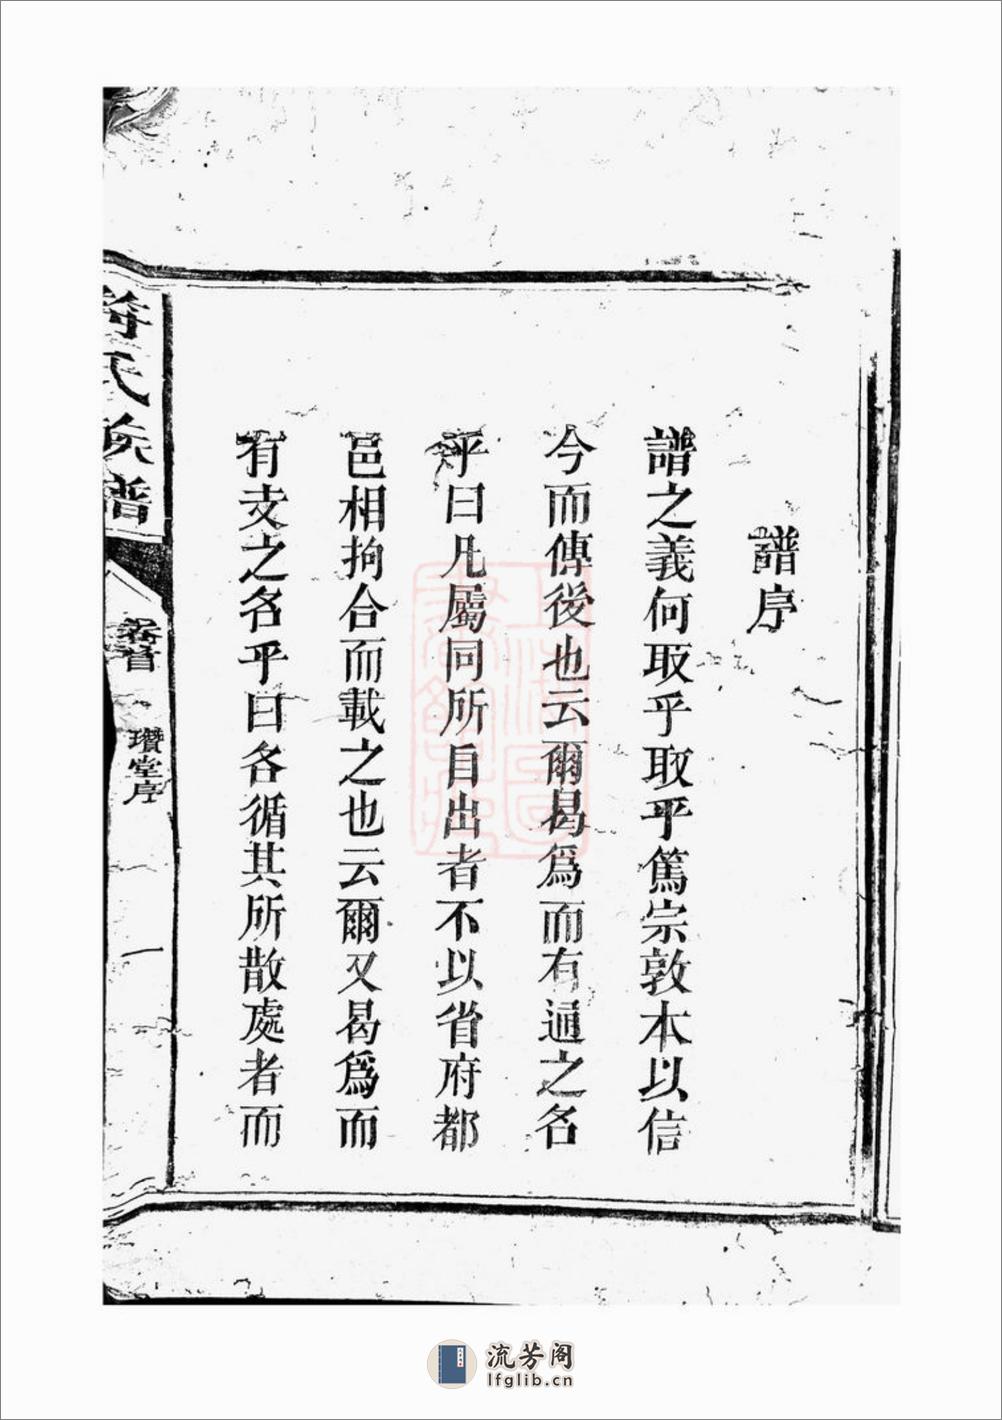 譜序
譜之義何取乎取乎篤宗敦本以信
今而傳後也云爾曷爲而有通之名
乎曰凡屬同所自出者不以省府都
邑相拘合而載之也云爾又曷爲而
有支之名乎曰各循其所散處者而
氏族譜
卷首
瓚堂序
一
流芳阁
lfglib.cn